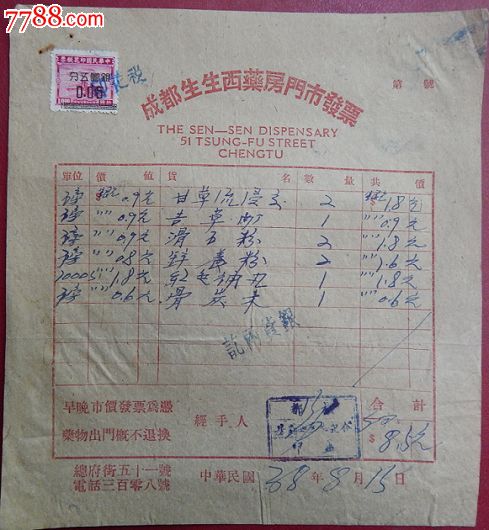 7788.com
中華民國印花稅票
伍分
0.05
印花稅
第 號
成都生生西藥房門市發票
THE SEN—SEN DISPENSARY
51 TSUNG-FU STREET
CHENGTU
單位 價值 貨名 數量 共價
磅 0.9元 甘草流浸膏 2 1.8元
磅 〃〃 0.9元 甘草粉 1 〃〃 0.9元
磅 〃〃 0.9元 滑石粉 2 〃〃 1.8元
磅 〃〃 0.8元 粉 2 〃〃 1.6元
1000S 〃〃 1.8元 1 〃〃 1.8元
磅 〃〃 0.6元 骨炭末 1 〃〃 0.6元
銀貨兩訖
早晚市價發票為憑
藥物出門概不退換
經手人
合計
$ 8.5元
總府街五十一號
電話三百零八號
中華民國 38 年 8 月 15 日
7788.com